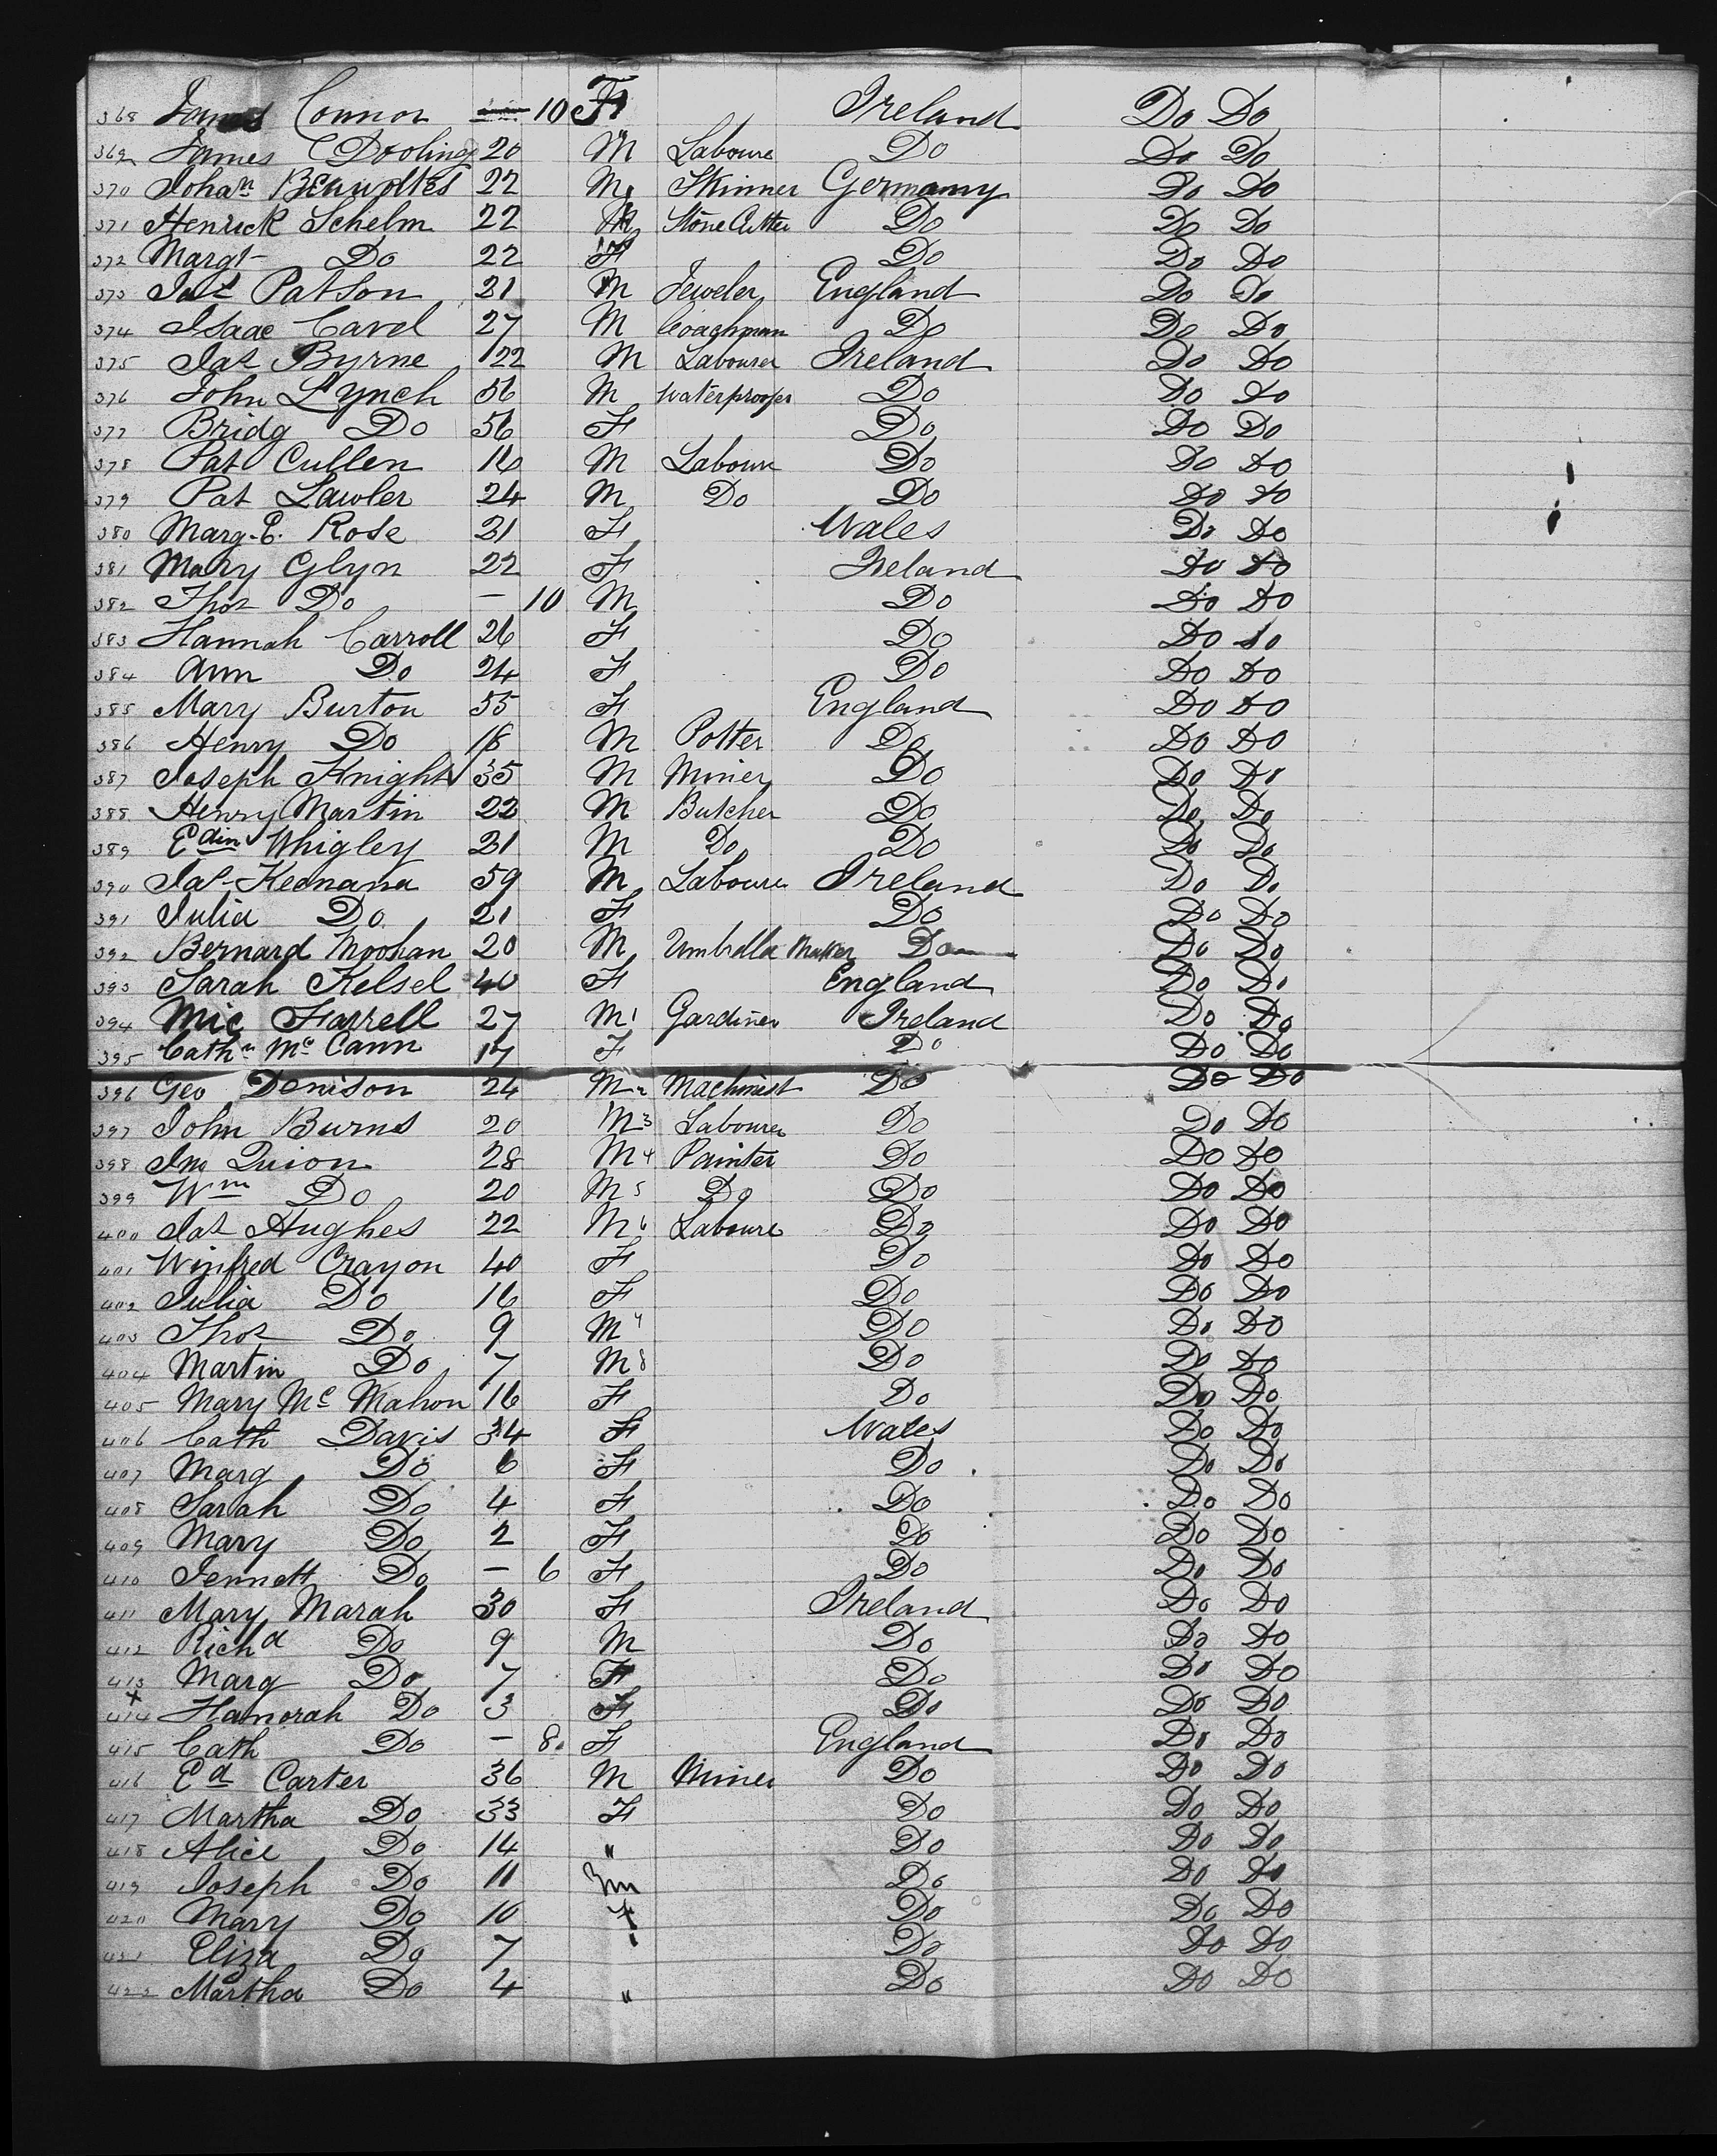 368 James Connor — 10 F Ireland Do Do
369 James Dooling 20 M Laboure Do Do Do
370 Johan 22 M Skinner Germany Do Do
371 Henrick Schelm 22 M Stone Cutter Do Do Do
372 Margt Do 22 F Do Do Do
373 Jas Patson 31 M Jeweler England Do Do
374 Isaac Cavel 27 M Coachman Do Do Do
375 Jas Byrne 22 M Labourer Ireland Do Do
376 John Lynch 56 M Waterproofer Do Do Do
377 Bridg Do 56 F Do Do Do
378 Pat Cullen 16 M Laboure Do Do Do
379 Pat Lawler 24 M Do Do Do Do
380 Marg. E. Rose 31 F Wales Do Do
381 Mary Glyn 22 F Ireland Do Do
382 Thos Do — 10 M Do Do Do
383 Hannah Carroll 26 F Do Do Do
384 Ann Do 24 F Do Do Do
385 Mary Burton 55 F England Do Do
386 Henry Do 18 M Potter Do Do Do
387 Joseph Knight 35 M Miner Do Do Do
388 Henry Martin 22 M Butcher Do Do Do
389 Edwin Whigley 31 M Do Do Do Do
390 Jas Keenana 59 M Laboure Ireland Do Do
391 Julia Do 21 F Do Do Do
392 Bernard Moohan 20 M Umbrella Maker Do Do Do
393 Sarah Kelsel 40 F England Do Do
394 Mic Farrell 27 M 1 Gardiner Ireland Do Do
395 Cathn Mc Cann 17 F Do Do Do
396 Geo Denison 24 M 2 Machinist Do Do Do
397 John Burns 20 M 3 Labourer Do Do Do
398 Jno Quion 28 M 4 Painter Do Do Do
399 Wm Do 20 M 5 Do Do Do Do
400 Jas Hughes 22 M 6 Laboure Do Do Do
401 Winifred Crayon 40 F Do Do Do
402 Julia Do 16 F Do Do Do
403 Thos Do 9 M 7 Do Do Do
404 Martin Do 7 M 8 Do Do Do
405 Mary Mc Mahon 16 F Do Do Do
406 Cath Davis 34 F Wales Do Do
407 Marg Do 6 F Do Do Do
408 Sarah Do 4 F Do Do Do
409 Mary Do 2 F Do Do Do
410 Jennett Do — 6 F Do Do Do
411 Mary Marah 30 F Ireland Do Do
412 Richd Do 9 M Do Do Do
413 Marg Do 7 F Do Do Do
414 Hanorah Do 3 F Do Do Do
415 Cath Do — 8 F England Do Do
416 Ed Carter 36 M Miner Do Do Do
417 Martha Do 33 F Do Do Do
418 Alice Do 14 " Do Do Do
419 Joseph Do 11 M Do Do Do
420 Mary Do 10 F Do Do Do
421 Eliza Do 7 " Do Do Do
422 Martha Do 4 " Do Do Do